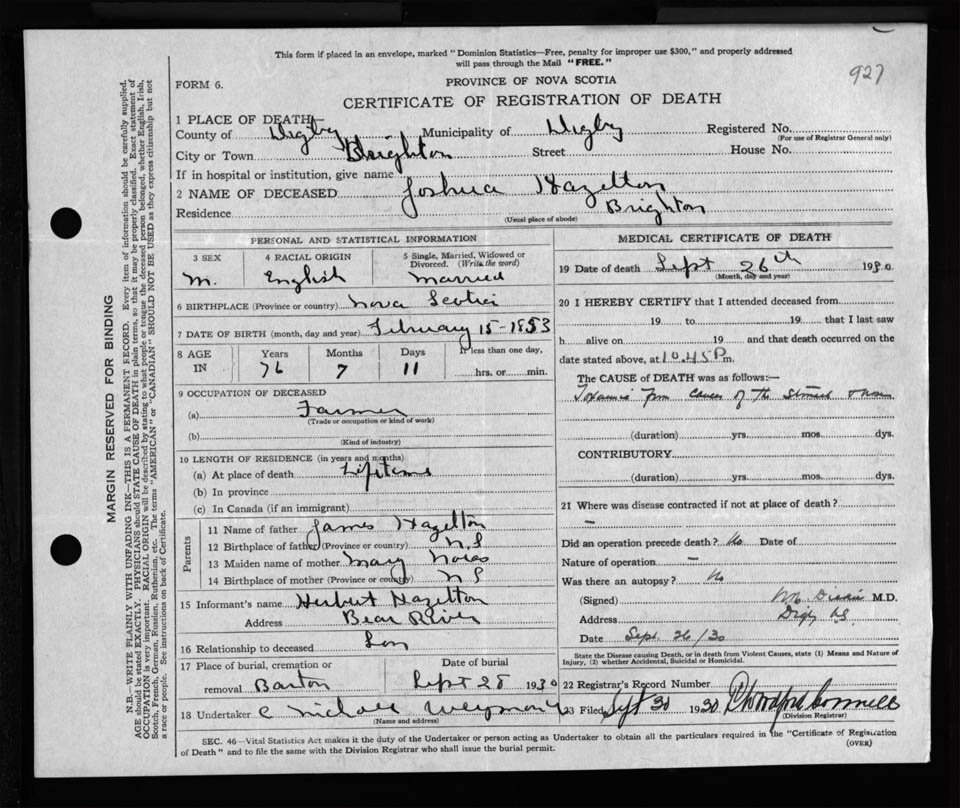 This form if placed in an envelope, marked "Dominion Statistics—Free, penalty for improper use $300," and properly addressed
will pass through the Mail "FREE."
927
FORM 6.
PROVINCE OF NOVA SCOTIA
CERTIFICATE OF REGISTRATION OF DEATH
1 PLACE OF DEATH—
County of Digby Municipality of Digby Registered No.
(For use of Registrar General only)
City or Town Brighton Street House No.
If in hospital or institution, give name
2 NAME OF DECEASED Joshua Hazelton
Residence Brighton
(Usual place of abode)
PERSONAL AND STATISTICAL INFORMATION
3 SEX 4 RACIAL ORIGIN 5 Single, Married, Widowed or
Divorced. (Write the word)
M. English Married
6 BIRTHPLACE (Province or country) Nova Scotia
7 DATE OF BIRTH (month, day and year) February 15-1853
8 AGE Years Months Days If less than one day,
IN 76 7 11 hrs. or min.
9 OCCUPATION OF DECEASED
(a) Farmer
(Trade or occupation or kind of work)
(b)
(Kind of industry)
10 LENGTH OF RESIDENCE (in years and months)
(a) At place of death Lifetime
(b) In province
(c) In Canada (if an immigrant)
Parents
11 Name of father James Hazelton
12 Birthplace of father (Province or country) N.S
13 Maiden name of mother Mary
14 Birthplace of mother (Province or country) N S
15 Informant's name Herbert Hazelton
Address Bear River
16 Relationship to deceased Son
17 Place of burial, cremation or Date of burial
removal Barton Sept 28 1930
18 Undertaker
(Name and address)
MEDICAL CERTIFICATE OF DEATH
19 Date of death Sept 26th 1930.
(Month, day and year)
20 I HEREBY CERTIFY that I attended deceased from
19 to 19 that I last saw
h alive on 19 and that death occurred on the
date stated above, at 10.45 P m.
The CAUSE of DEATH was as follows:—
from of the
(duration) yrs. mos. dys.
CONTRIBUTORY
(duration) yrs. mos. dys.
21 Where was disease contracted if not at place of death?
—
Did an operation precede death? No Date of
Nature of operation —
Was there an autopsy? No
(Signed) M.D.
Address Digby NS
Date Sept. 26/30
State the Disease causing Death, or in death from Violent Causes, state (1) Means and Nature of
Injury, (2) whether Accidental, Suicidal or Homicidal.
22 Registrar's Record Number
23 Filed Sept 30 1930
(Division Registrar)
SEC. 46—Vital Statistics Act makes it the duty of the Undertaker or person acting as Undertaker to obtain all the particulars required in the "Certificate of Registration
of Death" and to file the same with the Division Registrar who shall issue the burial permit. (OVER)
MARGIN RESERVED FOR BINDING
N.B.—WRITE PLAINLY WITH UNFADING INK—THIS IS A PERMANENT RECORD. Every item of information should be carefully supplied.
AGE should be stated EXACTLY. PHYSICIANS should STATE CAUSE OF DEATH in plain terms, so that it may be properly classified. Exact statement of
OCCUPATION is very important. RACIAL ORIGIN will be described by stating to what people or tongue the deceased person belonged, whether English, Irish,
Scotch, French, German, Russian, Ruthenian, etc. The terms "AMERICAN" or "CANADIAN" SHOULD NOT BE USED as they express citizenship but not
a race or people. See instructions on back of Certificate.